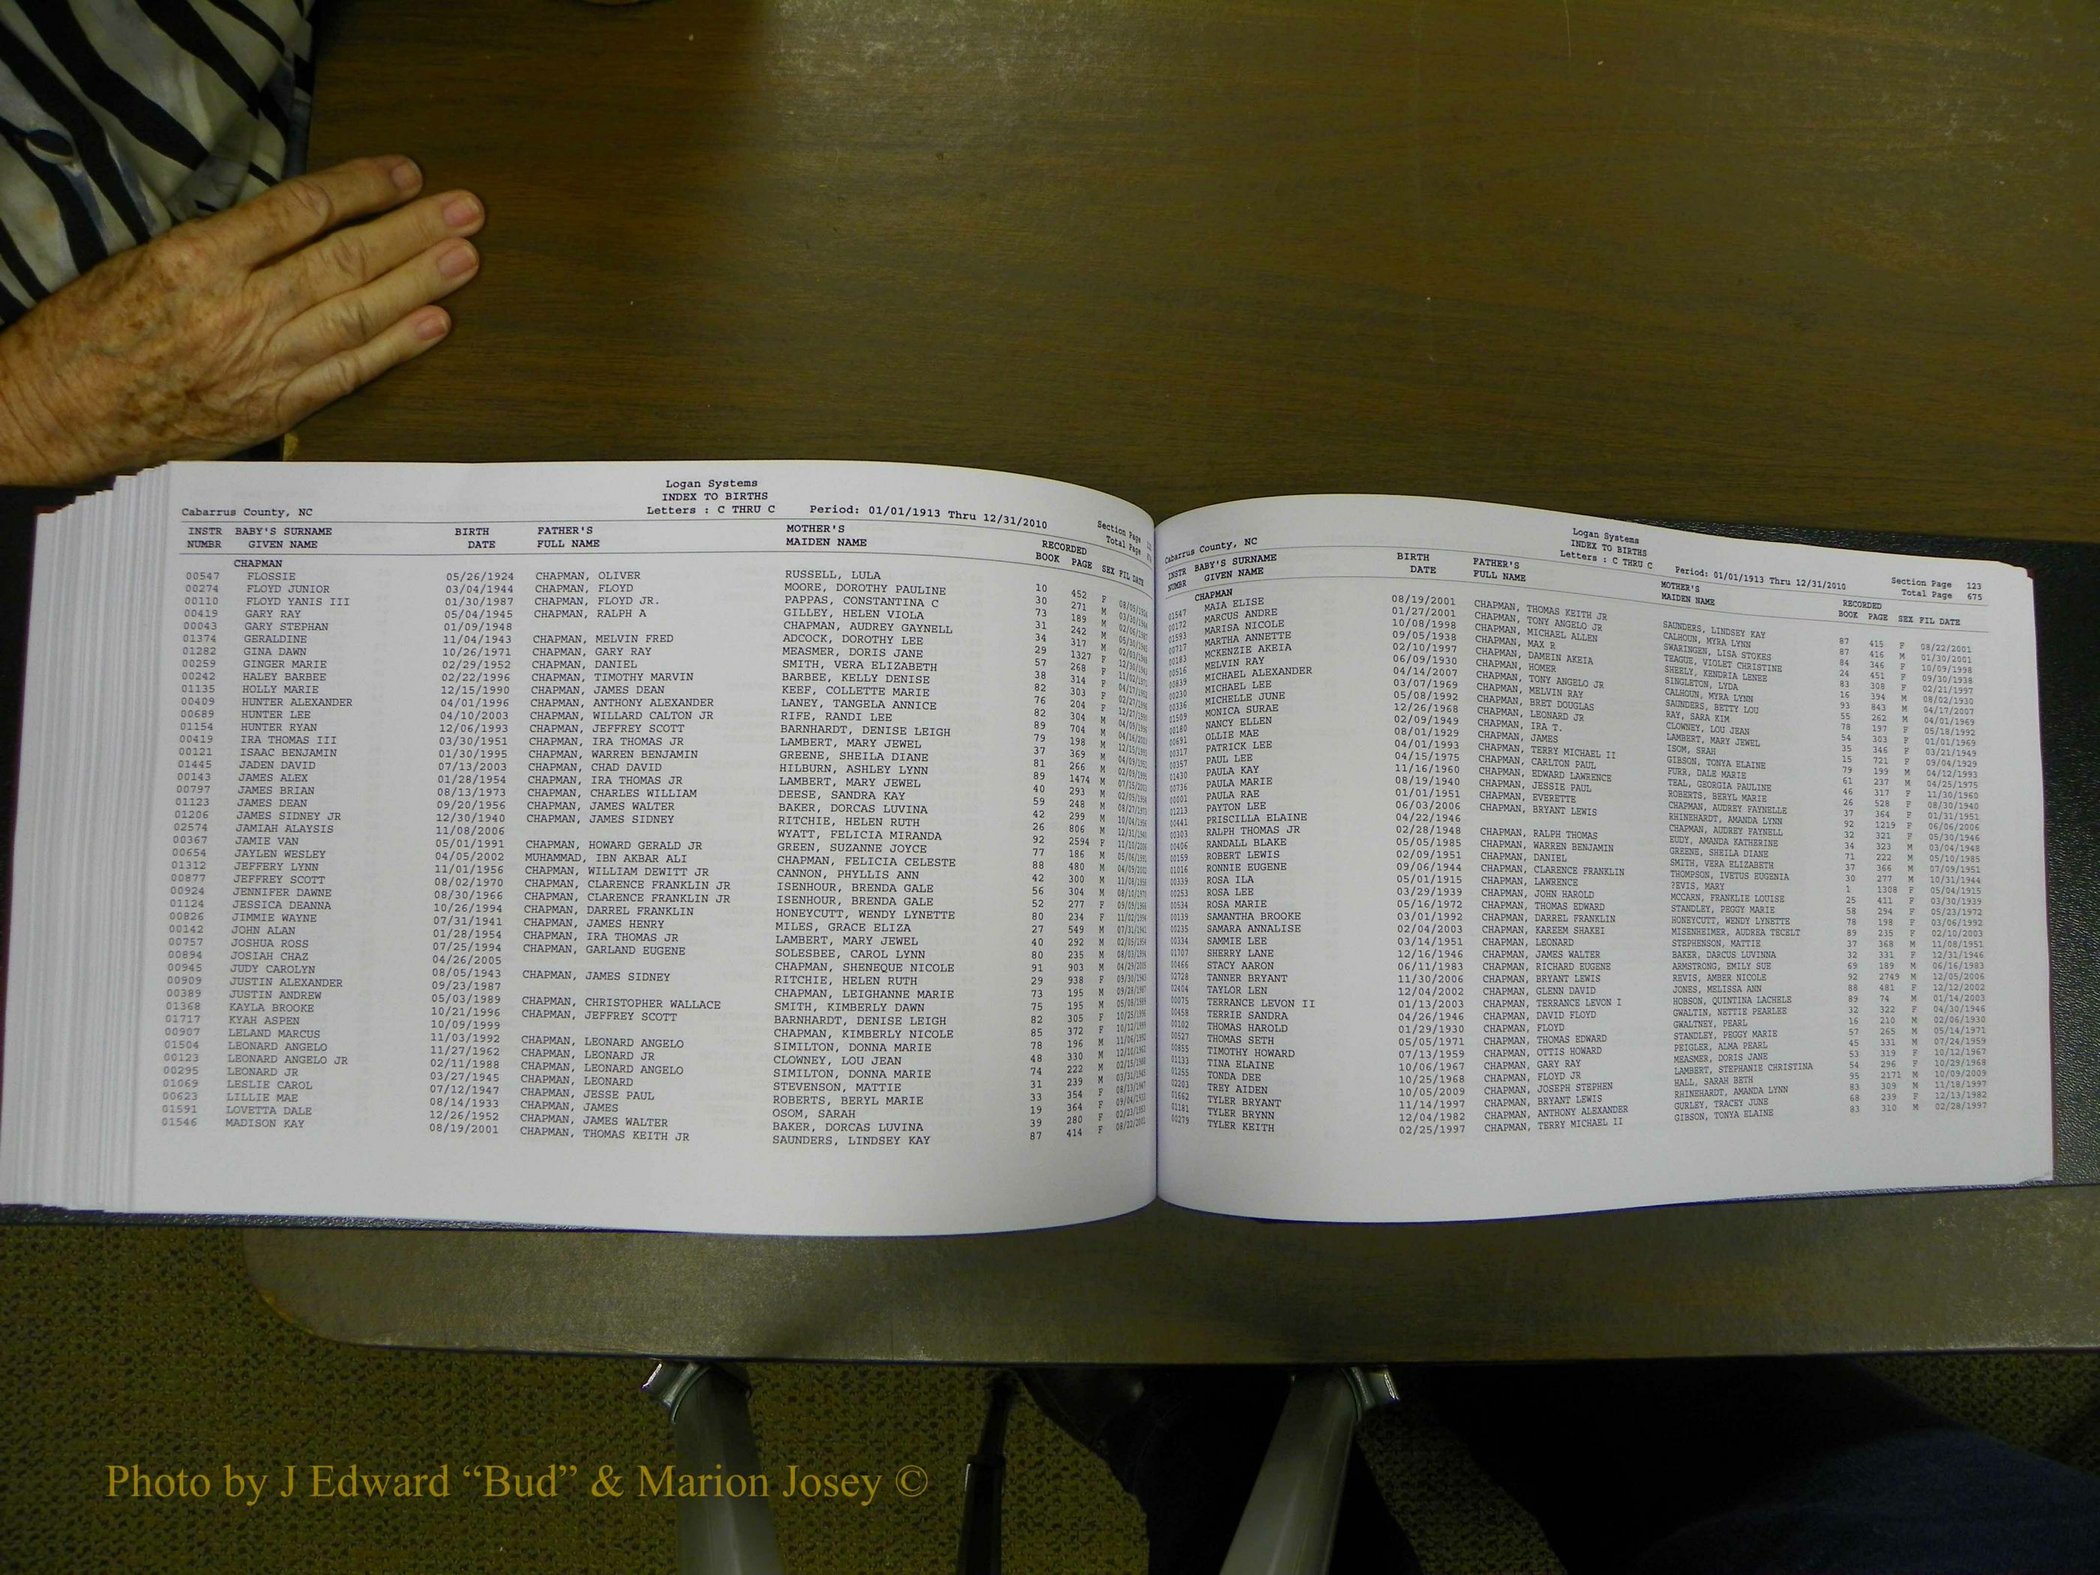 Logan Systems
INDEX TO BIRTHS
Cabarrus County, NC Letters : C THRU C Period: 01/01/1913 Thru 12/31/2010 Section Page
Total Page
INSTR BABY'S SURNAME BIRTH FATHER'S MOTHER'S RECORDED
NUMBR GIVEN NAME DATE FULL NAME MAIDEN NAME BOOK PAGE SEX FIL DATE
CHAPMAN
00547 FLOSSIE 05/26/1924 CHAPMAN, OLIVER RUSSELL, LULA 10 452 F
00274 FLOYD JUNIOR 03/04/1944 CHAPMAN, FLOYD MOORE, DOROTHY PAULINE 30 271 M
00110 FLOYD YANIS III 01/30/1987 CHAPMAN, FLOYD JR. PAPPAS, CONSTANTINA C 73 189 M
00419 GARY RAY 05/04/1945 CHAPMAN, RALPH A GILLEY, HELEN VIOLA 31 242 M
00043 GARY STEPHAN 01/09/1948 CHAPMAN, AUDREY GAYNELL 34 317 M
01374 GERALDINE 11/04/1943 CHAPMAN, MELVIN FRED ADCOCK, DOROTHY LEE 29 1327 F
01282 GINA DAWN 10/26/1971 CHAPMAN, GARY RAY MEASMER, DORIS JANE 57 268 F
00259 GINGER MARIE 02/29/1952 CHAPMAN, DANIEL SMITH, VERA ELIZABETH 38 314 F
00242 HALEY BARBEE 02/22/1996 CHAPMAN, TIMOTHY MARVIN BARBEE, KELLY DENISE 82 303 F
01135 HOLLY MARIE 12/15/1990 CHAPMAN, JAMES DEAN KEEF, COLLETTE MARIE 76 204 F
00409 HUNTER ALEXANDER 04/01/1996 CHAPMAN, ANTHONY ALEXANDER LANEY, TANGELA ANNICE 82 304 M
00689 HUNTER LEE 04/10/2003 CHAPMAN, WILLARD CALTON JR RIFE, RANDI LEE 89 704 M
01154 HUNTER RYAN 12/06/1993 CHAPMAN, JEFFREY SCOTT BARNHARDT, DENISE LEIGH 79 198 M
00419 IRA THOMAS III 03/30/1951 CHAPMAN, IRA THOMAS JR LAMBERT, MARY JEWEL 37 369 M
00121 ISAAC BENJAMIN 01/30/1995 CHAPMAN, WARREN BENJAMIN GREENE, SHEILA DIANE 81 266 M
01445 JADEN DAVID 07/13/2003 CHAPMAN, CHAD DAVID HILBURN, ASHLEY LYNN 89 1474 M
00143 JAMES ALEX 01/28/1954 CHAPMAN, IRA THOMAS JR LAMBERT, MARY JEWEL 40 293 M
00797 JAMES BRIAN 08/13/1973 CHAPMAN, CHARLES WILLIAM DEESE, SANDRA KAY 59 248 M
01123 JAMES DEAN 09/20/1956 CHAPMAN, JAMES WALTER BAKER, DORCAS LUVINA 42 299 M
01206 JAMES SIDNEY JR 12/30/1940 CHAPMAN, JAMES SIDNEY RITCHIE, HELEN RUTH 26 806 M
02574 JAMIAH ALAYSIS 11/08/2006 WYATT, FELICIA MIRANDA 92 2594 F
00367 JAMIE VAN 05/01/1991 CHAPMAN, HOWARD GERALD JR GREEN, SUZANNE JOYCE 77 186 M
00654 JAYLEN WESLEY 04/05/2002 MUHAMMAD, IBN AKBAR ALI CHAPMAN, FELICIA CELESTE 88 480 M
01312 JEFFERY LYNN 11/01/1956 CHAPMAN, WILLIAM DEWITT JR CANNON, PHYLLIS ANN 42 300 M
00877 JEFFREY SCOTT 08/02/1970 CHAPMAN, CLARENCE FRANKLIN JR ISENHOUR, BRENDA GALE 56 304 M
00924 JENNIFER DAWNE 08/30/1966 CHAPMAN, CLARENCE FRANKLIN JR ISENHOUR, BRENDA GALE 52 277 F
01124 JESSICA DEANNA 10/26/1994 CHAPMAN, DARREL FRANKLIN HONEYCUTT, WENDY LYNETTE 80 234 F
00826 JIMMIE WAYNE 07/31/1941 CHAPMAN, JAMES HENRY MILES, GRACE ELIZA 27 549 M
00142 JOHN ALAN 01/28/1954 CHAPMAN, IRA THOMAS JR LAMBERT, MARY JEWEL 40 292 M
00757 JOSHUA ROSS 07/25/1994 CHAPMAN, GARLAND EUGENE SOLESBEE, CAROL LYNN 80 235 M
00894 JOSIAH CHAZ 04/26/2005 CHAPMAN, SHENEQUE NICOLE 91 903 M
00945 JUDY CAROLYN 08/05/1943 CHAPMAN, JAMES SIDNEY RITCHIE, HELEN RUTH 29 938 F
00909 JUSTIN ALEXANDER 09/23/1987 CHAPMAN, LEIGHANNE MARIE 73 195 M
00389 JUSTIN ANDREW 05/03/1989 CHAPMAN, CHRISTOPHER WALLACE SMITH, KIMBERLY DAWN 75 195 M
01368 KAYLA BROOKE 10/21/1996 CHAPMAN, JEFFREY SCOTT BARNHARDT, DENISE LEIGH 82 305 F
01717 KYAH ASPEN 10/09/1999 CHAPMAN, KIMBERLY NICOLE 85 372 F
00907 LELAND MARCUS 11/03/1992 CHAPMAN, LEONARD ANGELO SIMILTON, DONNA MARIE 78 196 M
01504 LEONARD ANGELO 11/27/1962 CHAPMAN, LEONARD JR CLOWNEY, LOU JEAN 48 330 M
00123 LEONARD ANGELO JR 02/11/1988 CHAPMAN, LEONARD ANGELO SIMILTON, DONNA MARIE 74 222 M
00295 LEONARD JR 03/27/1945 CHAPMAN, LEONARD STEVENSON, MATTIE 31 239 M
01069 LESLIE CAROL 07/12/1947 CHAPMAN, JESSE PAUL ROBERTS, BERYL MARIE 33 354 F
00623 LILLIE MAE 08/14/1933 CHAPMAN, JAMES OSOM, SARAH 19 364 F
01591 LOVETTA DALE 12/26/1952 CHAPMAN, JAMES WALTER BAKER, DORCAS LUVINA 39 280 F
01546 MADISON KAY 08/19/2001 CHAPMAN, THOMAS KEITH JR SAUNDERS, LINDSEY KAY 87 414 F 08/22/2001
Logan Systems
INDEX TO BIRTHS
Cabarrus County, NC Letters : C THRU C Period: 01/01/1913 Thru 12/31/2010 Section Page 123
Total Page 675
INSTR BABY'S SURNAME BIRTH FATHER'S MOTHER'S RECORDED
NUMBR GIVEN NAME DATE FULL NAME MAIDEN NAME BOOK PAGE SEX FIL DATE
CHAPMAN
01547 MAIA ELISE 08/19/2001 CHAPMAN, THOMAS KEITH JR SAUNDERS, LINDSEY KAY 87 415 F 08/22/2001
00172 MARCUS ANDRE 01/27/2001 CHAPMAN, TONY ANGELO JR CALHOUN, MYRA LYNN 87 416 M 01/30/2001
01593 MARISA NICOLE 10/08/1998 CHAPMAN, MICHAEL ALLEN SWARINGEN, LISA STOKES 84 346 F 10/09/1998
00717 MARTHA ANNETTE 09/05/1938 CHAPMAN, MAX R TEAGUE, VIOLET CHRISTINE 24 451 F 09/30/1938
00183 MCKENZIE AKEIA 02/10/1997 CHAPMAN, DAMEIN AKEIA SHEELY, KENDRIA LENEE 83 308 F 02/21/1997
00516 MELVIN RAY 06/09/1930 CHAPMAN, HOMER SINGLETON, LYDA 16 394 M 08/02/1930
00839 MICHAEL ALEXANDER 04/14/2007 CHAPMAN, TONY ANGELO JR CALHOUN, MYRA LYNN 93 843 M 04/17/2007
00230 MICHAEL LEE 03/07/1969 CHAPMAN, MELVIN RAY SAUNDERS, BETTY LOU 55 262 M 04/01/1969
00336 MICHELLE JUNE 05/08/1992 CHAPMAN, BRET DOUGLAS RAY, SARA KIM 78 197 F 05/18/1992
01509 MONICA SURAE 12/26/1968 CHAPMAN, LEONARD JR CLOWNEY, LOU JEAN 54 303 F 01/01/1969
00180 NANCY ELLEN 02/09/1949 CHAPMAN, IRA T. LAMBERT, MARY JEWEL 35 346 F 03/21/1949
00691 OLLIE MAE 08/01/1929 CHAPMAN, JAMES ISOM, SRAH 15 721 F 09/04/1929
00317 PATRICK LEE 04/01/1993 CHAPMAN, TERRY MICHAEL II GIBSON, TONYA ELAINE 79 199 M 04/12/1993
00357 PAUL LEE 04/15/1975 CHAPMAN, CARLTON PAUL FURR, DALE MARIE 61 237 M 04/25/1975
01430 PAULA KAY 11/16/1960 CHAPMAN, EDWARD LAWRENCE TEAL, GEORGIA PAULINE 46 317 F 11/30/1960
00736 PAULA MARIE 08/19/1940 CHAPMAN, JESSIE PAUL ROBERTS, BERYL MARIE 26 528 F 08/30/1940
00001 PAULA RAE 01/01/1951 CHAPMAN, EVERETTE CHAPMAN, AUDREY FAYNELLE 37 364 F 01/31/1951
01213 PAYTON LEE 06/03/2006 CHAPMAN, BRYANT LEWIS RHINEHARDT, AMANDA LYNN 92 1219 F 06/06/2006
00441 PRISCILLA ELAINE 04/22/1946 CHAPMAN, AUDREY FAYNELL 32 321 F 05/30/1946
00303 RALPH THOMAS JR 02/28/1948 CHAPMAN, RALPH THOMAS EUDY, AMANDA KATHERINE 34 323 M 03/04/1948
00406 RANDALL BLAKE 05/05/1985 CHAPMAN, WARREN BENJAMIN GREENE, SHEILA DIANE 71 222 M 05/10/1985
00159 ROBERT LEWIS 02/09/1951 CHAPMAN, DANIEL SMITH, VERA ELIZABETH 37 366 M 07/09/1951
01016 RONNIE EUGENE 09/06/1944 CHAPMAN, CLARENCE FRANKLIN THOMPSON, IVETUS EUGENIA 30 277 M 10/31/1944
00339 ROSA ILA 05/01/1915 CHAPMAN, LAWRENCE ?EVIS, MARY 1 1308 F 05/04/1915
00253 ROSA LEE 03/29/1939 CHAPMAN, JOHN HAROLD MCCARN, FRANKLIE LOUISE 25 411 F 03/30/1939
00534 ROSA MARIE 05/16/1972 CHAPMAN, THOMAS EDWARD STANDLEY, PEGGY MARIE 58 294 F 05/23/1972
00139 SAMANTHA BROOKE 03/01/1992 CHAPMAN, DARREL FRANKLIN HONEYCUTT, WENDY LYNETTE 78 198 F 03/06/1992
00235 SAMARA ANNALISE 02/04/2003 CHAPMAN, KAREEM SHAKEI MISENHEIMER, AUDREA TECELT 89 235 F 02/10/2003
00334 SAMMIE LEE 03/14/1951 CHAPMAN, LEONARD STEPHENSON, MATTIE 37 368 M 11/08/1951
01707 SHERRY LANE 12/16/1946 CHAPMAN, JAMES WALTER BAKER, DARCUS LUVINNA 32 331 F 12/31/1946
00466 STACY AARON 06/11/1983 CHAPMAN, RICHARD EUGENE ARMSTRONG, EMILY SUE 69 189 M 06/16/1983
02728 TANNER BRYANT 11/30/2006 CHAPMAN, BRYANT LEWIS REVIS, AMBER NICOLE 92 2749 M 12/05/2006
02404 TAYLOR LEN 12/04/2002 CHAPMAN, GLENN DAVID JONES, MELISSA ANN 88 481 F 12/12/2002
00075 TERRANCE LEVON II 01/13/2003 CHAPMAN, TERRANCE LEVON I HOBSON, QUINTINA LACHELE 89 74 M 01/14/2003
00458 TERRIE SANDRA 04/26/1946 CHAPMAN, DAVID FLOYD GWALTIN, NETTIE PEARLEE 32 322 F 04/30/1946
00102 THOMAS HAROLD 01/29/1930 CHAPMAN, FLOYD GWALTNEY, PEARL 16 210 M 02/06/1930
00527 THOMAS SETH 05/05/1971 CHAPMAN, THOMAS EDWARD STANDLEY, PEGGY MARIE 57 265 M 05/14/1971
00855 TIMOTHY HOWARD 07/13/1959 CHAPMAN, OTTIS HOWARD PEIGLER, ALMA PEARL 45 331 M 07/24/1959
01133 TINA ELAINE 10/06/1967 CHAPMAN, GARY RAY MEASMER, DORIS JANE 53 319 F 10/12/1967
01255 TONDA DEE 10/25/1968 CHAPMAN, FLOYD JR LAMBERT, STEPHANIE CHRISTINA 54 296 F 10/29/1968
02203 TREY AIDEN 10/05/2009 CHAPMAN, JOSEPH STEPHEN HALL, SARAH BETH 95 2171 M 10/09/2009
01662 TYLER BRYANT 11/14/1997 CHAPMAN, BRYANT LEWIS RHINEHARDT, AMANDA LYNN 83 309 M 11/18/1997
01181 TYLER BRYNN 12/04/1982 CHAPMAN, ANTHONY ALEXANDER GURLEY, TRACEY JUNE 68 239 F 12/13/1982
00279 TYLER KEITH 02/25/1997 CHAPMAN, TERRY MICHAEL II GIBSON, TONYA ELAINE 83 310 M 02/28/1997
Photo by J Edward “Bud” & Marion Josey ©